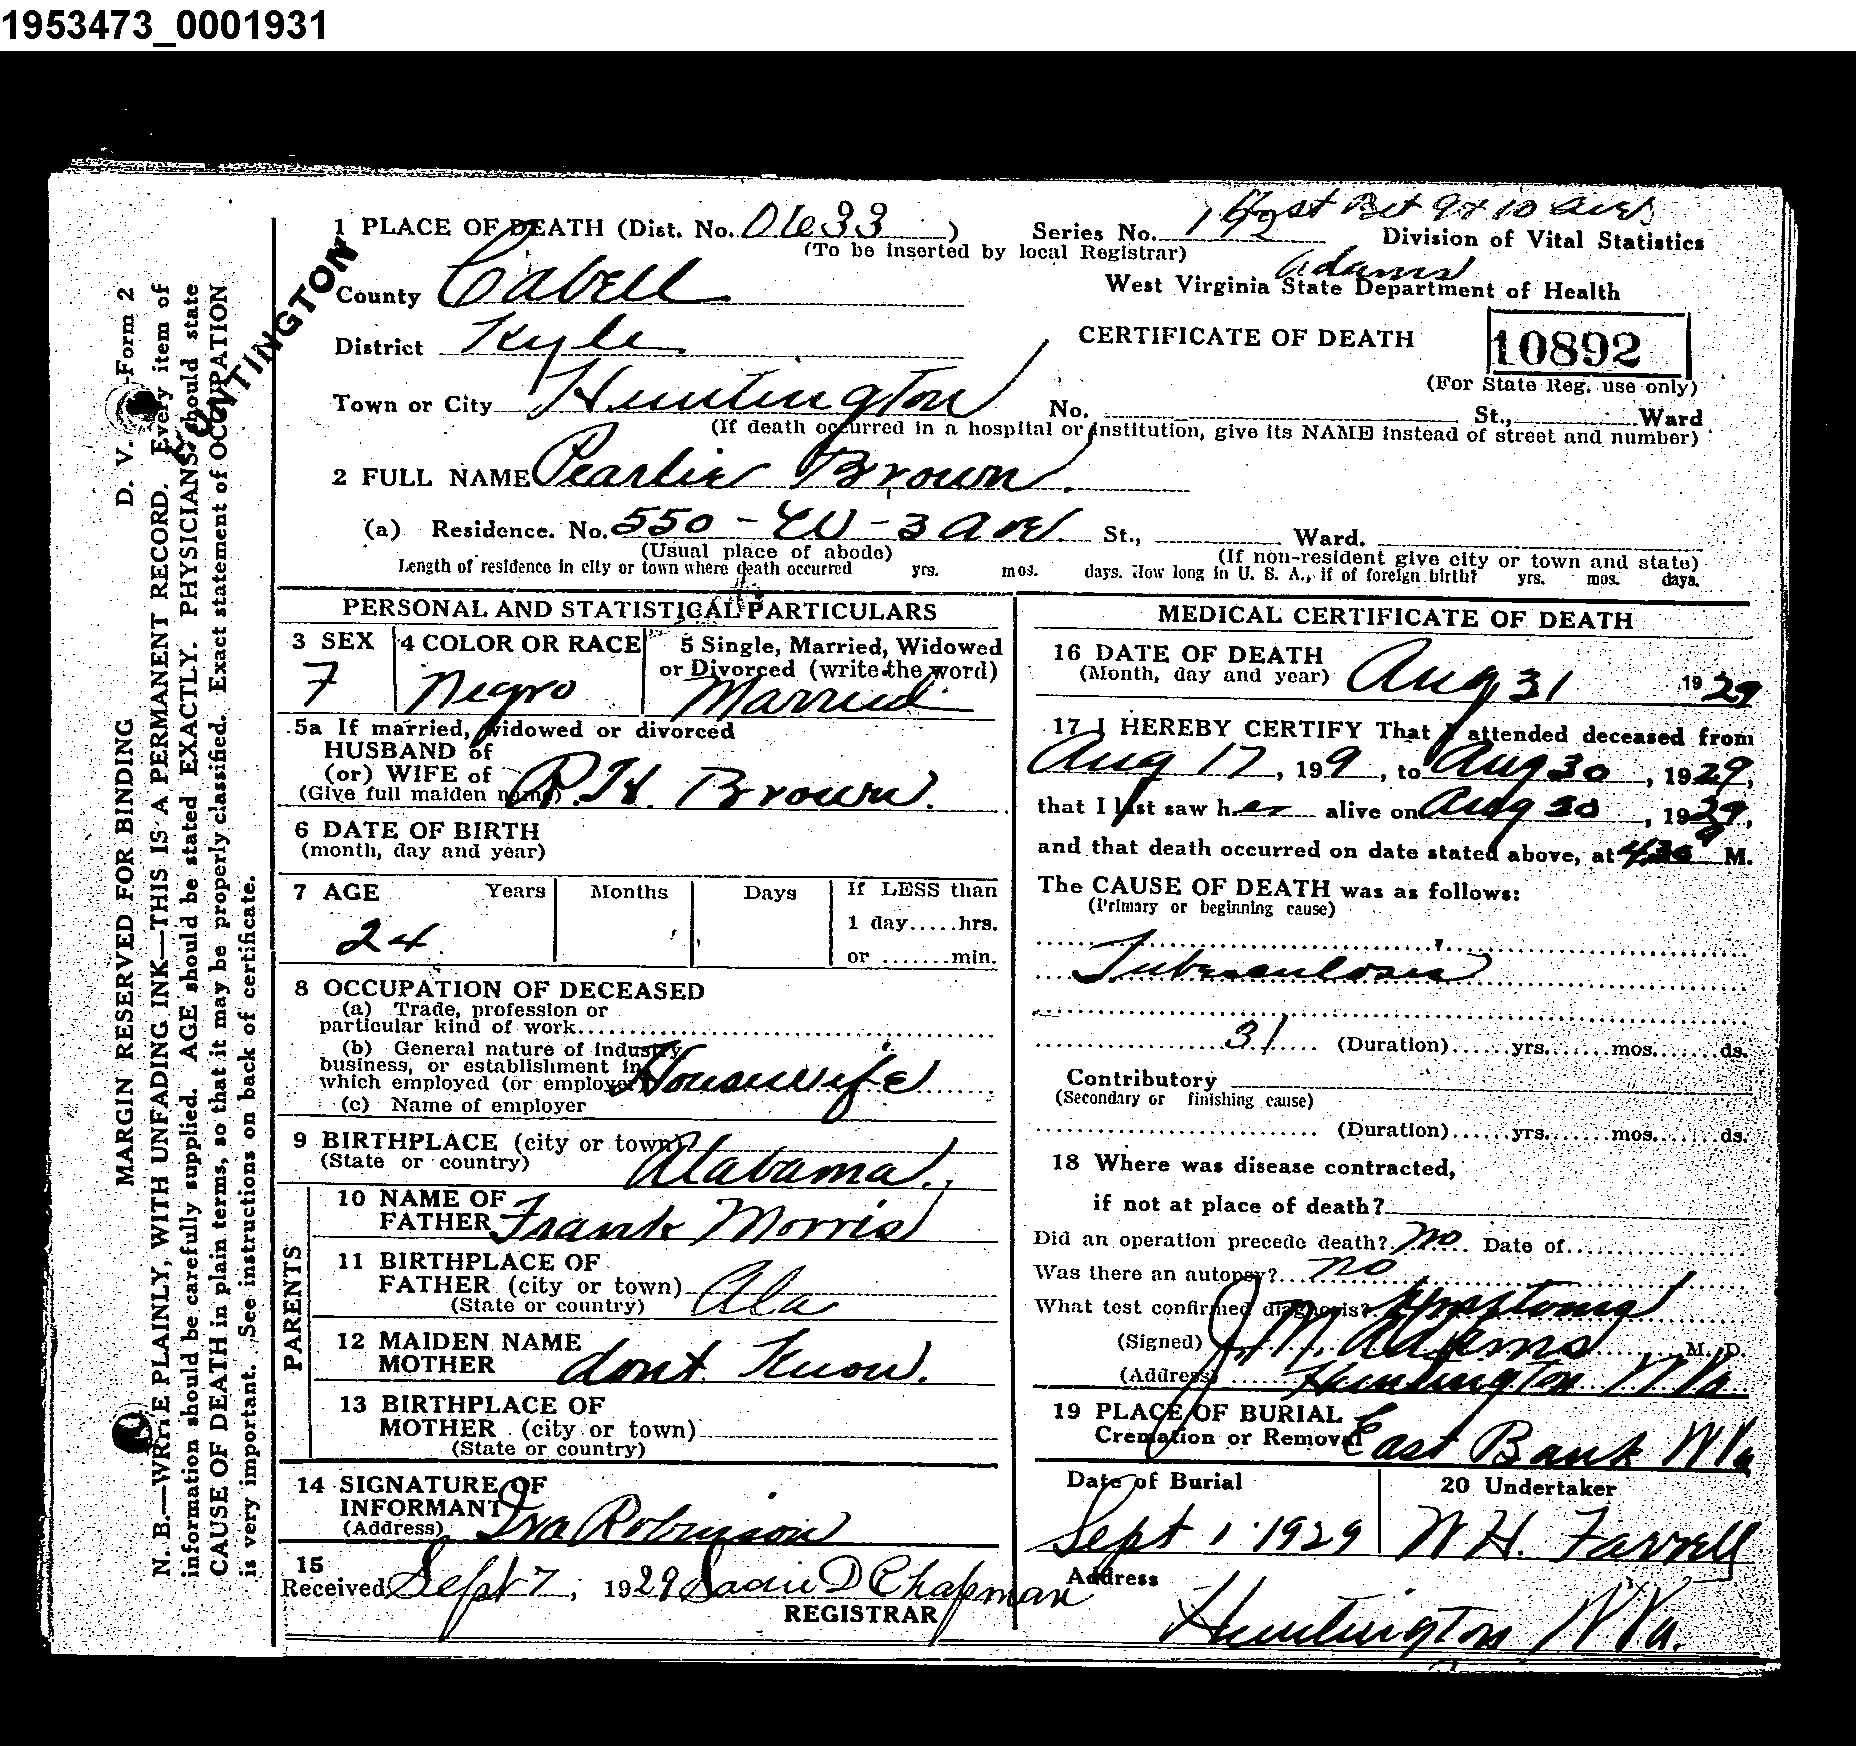 1953473_0001931
1 PLACE OF DEATH (Dist. No. 0633 )
(To be inserted by local Registrar)
Series No. 192
Hosp Bet 9 & 10 aves
Division of Vital Statistics
Adams
West Virginia State Department of Health
HUNTINGTON
County Cabell
District Kyle
CERTIFICATE OF DEATH
10892
(For State Reg. use only)
Town or City Huntington No. St., Ward
(If death occurred in a hospital or institution, give its NAME instead of street and number)
2 FULL NAME Pearlie Brown.
(a) Residence. No. 550 - W - 3 Ave St., Ward.
(Usual place of abode) (If non-resident give city or town and state)
Length of residence in city or town where death occurred yrs. mos. days. How long in U. S. A., if of foreign birth? yrs. mos. days.
PERSONAL AND STATISTICAL PARTICULARS
3 SEX
F
4 COLOR OR RACE
Negro
5 Single, Married, Widowed
or Divorced (write the word)
Married
5a If married, widowed or divorced
HUSBAND of
(or) WIFE of
(Give full maiden name) R. H. Brown.
6 DATE OF BIRTH
(month, day and year)
7 AGE Years Months Days If LESS than
1 day.....hrs.
24
or .......min.
8 OCCUPATION OF DECEASED
(a) Trade, profession or
particular kind of work
(b) General nature of industry,
business, or establishment in
which employed (or employer) Housewife
(c) Name of employer
9 BIRTHPLACE (city or town)
(State or country) Alabama.
PARENTS
10 NAME OF
FATHER Frank Morris
11 BIRTHPLACE OF
FATHER (city or town) Ala
(State or country)
12 MAIDEN NAME
MOTHER dont Know.
13 BIRTHPLACE OF
MOTHER (city or town)
(State or country)
14 SIGNATURE OF
INFORMANT
(Address) Iva Robinson
15
Received Sept 7, 1929 Sadie D Chapman
REGISTRAR
MEDICAL CERTIFICATE OF DEATH
16 DATE OF DEATH
(Month, day and year) Aug 31 1929
17 I HEREBY CERTIFY That I attended deceased from
Aug 17, 199, to Aug 30, 1929,
that I last saw her alive on Aug 30, 1929,
and that death occurred on date stated above, at M.
The CAUSE OF DEATH was as follows:
(Primary or beginning cause)
Tuberculosis
31 (Duration) yrs. mos. ds.
Contributory
(Secondary or finishing cause)
(Duration) yrs. mos. ds.
18 Where was disease contracted,
if not at place of death?
Did an operation precede death? no Date of
Was there an autopsy? no
What test confirmed diagnosis?
(Signed) J. N. Adams M. D.
(Address) Huntington W Va
19 PLACE OF BURIAL
Cremation or Removal East Bank W Va
Date of Burial
Sept 1 1929
20 Undertaker
W H. Farrell
Address
Huntington W Va.
D. V. S.-Form 2
MARGIN RESERVED FOR BINDING
N. B.—WRITE PLAINLY, WITH UNFADING INK—THIS IS A PERMANENT RECORD. Every item of
information should be carefully supplied. AGE should be stated EXACTLY. PHYSICIANS should state
CAUSE OF DEATH in plain terms, so that it may be properly classified. Exact statement of OCCUPATION
is very important. See instructions on back of certificate.